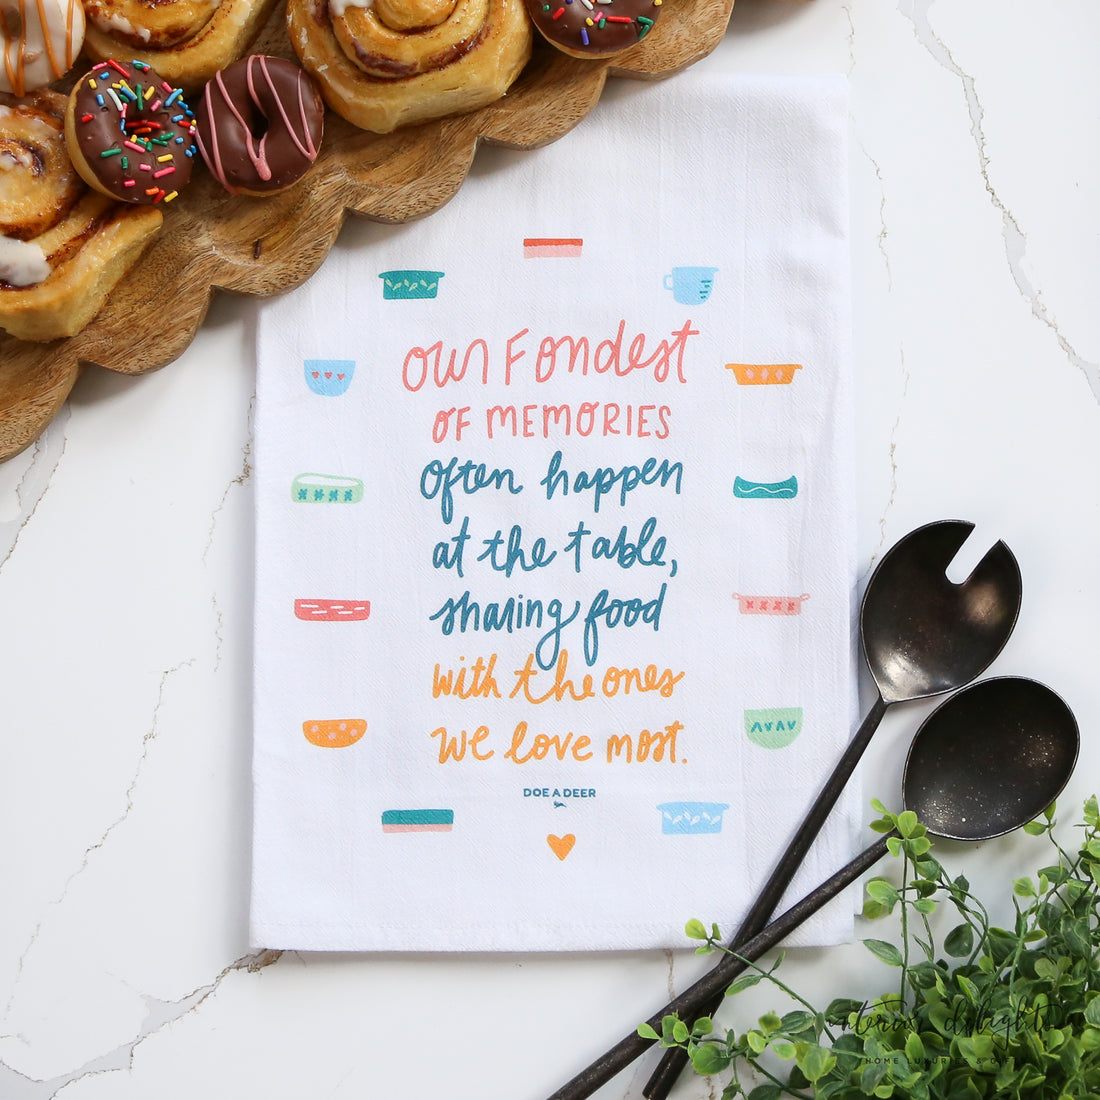 our Fondest
OF MEMORIES
often happen
at the table,
sharing food
with the ones
we love most.
DOE A DEER
interior delights
HOME LUXURIES & GIFTS